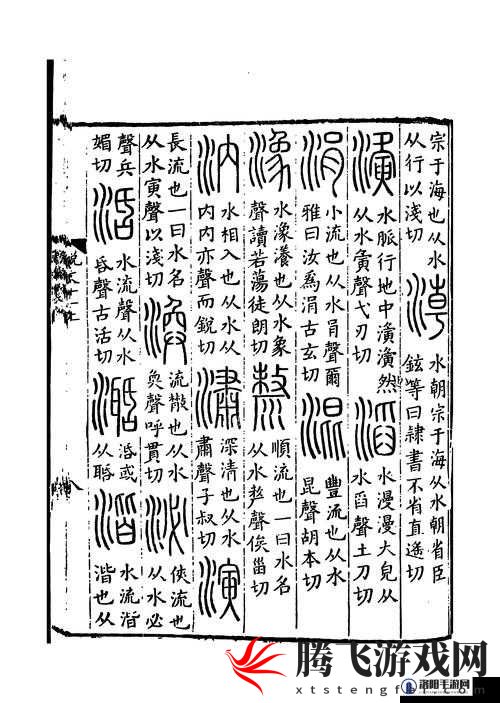 宗于海也从水
从行以淺切
淖
水朝宗于海从水朝省臣
鉉等曰隸書不省直遙切
濥
水脈行地中濥濥然
从水寅聲弋刃切
滔
水漫漫大皃从
水舀聲土刀切
涓
小流也从水肙聲爾
雅曰汝爲涓古玄切
混
豐流也从水
昆聲胡本切
潒
水潒瀁也从水象
聲讀若蕩徒朗切
漦
順流也一曰水名
从水𠩺聲俟甾切
汭
水相入也从水从
内内亦聲而銳切
潚
深清也从水
肅聲子叔切
演
長流也一曰水名
从水寅聲以淺切
渙
流㪚也从水
奐聲呼貫切
泌
俠流也
从水必
聲兵
媚切
湉
水流聲从水
昏聲古活切
濶
湉或
从聒
湝
水流湝
湝也从
腾飞游戏网
xtstengfei.com
洛阳手游网